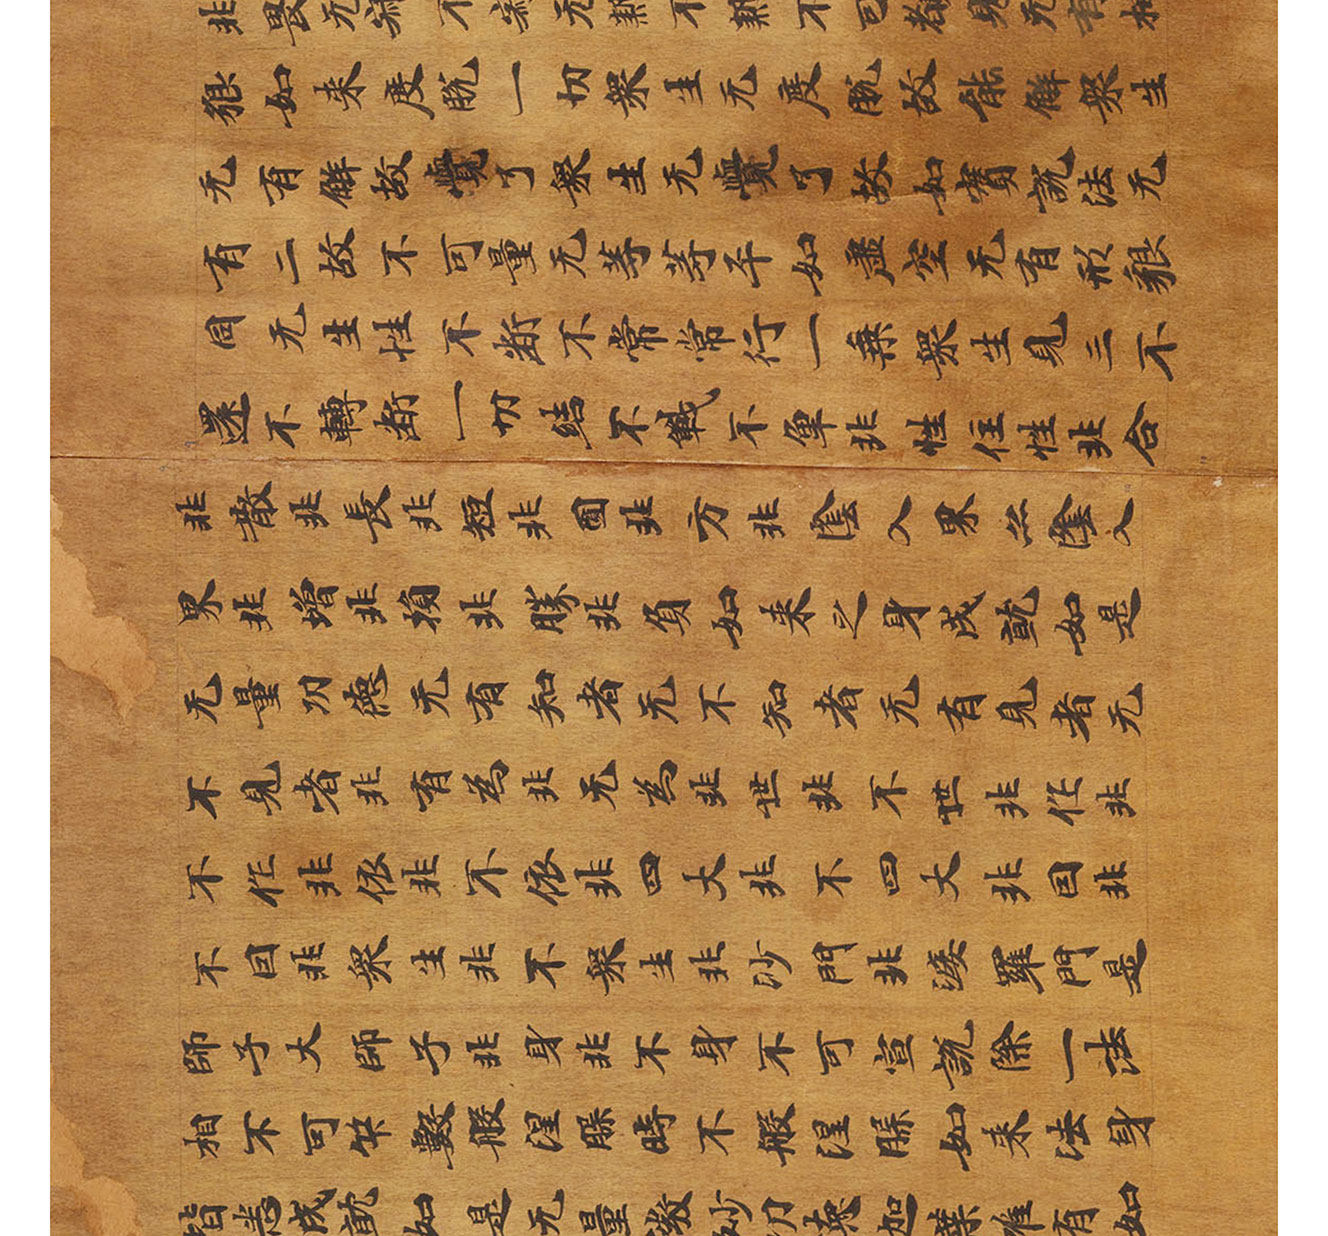 非畏无寂不寂无熱不熱不可覩見无有相
貌如来度脱一切衆生无度脱故能解衆生
无有解故覺了衆生无覺了故如實說法无
有二故不可量无等等平如虛空无有形貌
同无生性不断不常常行一乘衆生見三不
還不轉断一切結不戰不單非性住性非合
非散非長非短非圓非方非陰入界亦陰入
界非增非損非勝非負如来之身成就如是
无量功德无有知者无不知者无有見者无
不見者非有為非无為非世非不世非作非
不作非依非不依非四大非不四大非因非
不因非衆生非不衆生非沙門非婆羅門是
師子大師子非身非不身不可宣說除一法
相不可筭數般涅槃時不般涅槃如来法身
皆悉成就如是无量微妙功德迦葉唯有如